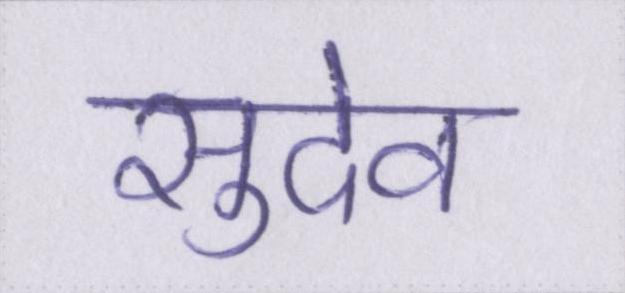 सुदेव